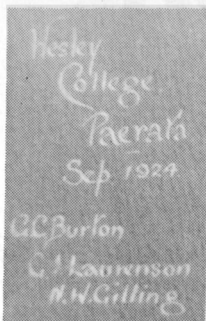 Wesley
College,
Paerata
Sep. 1924
G.C. Burton
Laurenson
N.W. Gilling